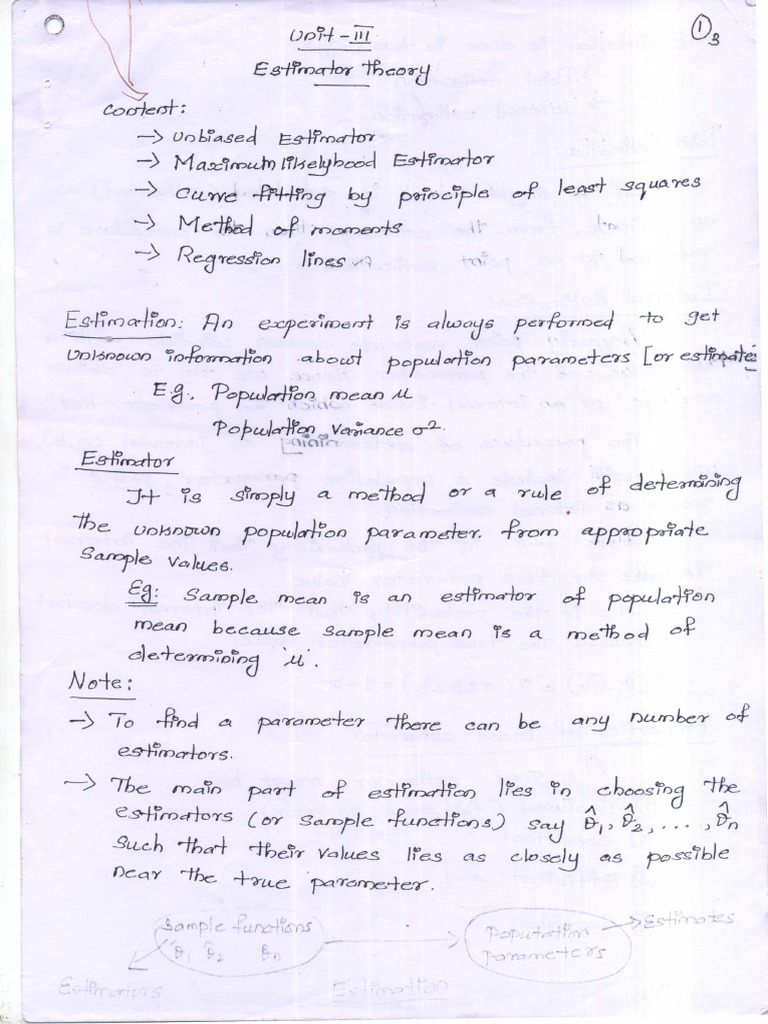 ①3
Unit - III
Estimator Theory
Content:
→ Unbiased Estimator
→ Maximum likelyhood Estimator
→ Curve fitting by principle of least squares
→ Method of moments
→ Regression lines
Estimation: An experiment is always performed to get
unknown information about population parameters [or estimate]
E.g. Population mean μ
Population variance σ².
Estimator
It is simply a method or a rule of determining
the unknown population parameter from appropriate
sample values.
Eg: Sample mean is an estimator of population
mean because sample mean is a method of
determining 'μ'.
Note:
→ To find a parameter there can be any number of
estimators.
→ The main part of estimation lies in choosing the
estimators (or sample functions) say θ̂1, θ̂2, ..., θ̂n
such that their values lies as closely as possible
near the true parameter.
Sample functions
θ̂1 θ̂2 θ̂n
Population
parameters
Estimates
Estimators
Estimation